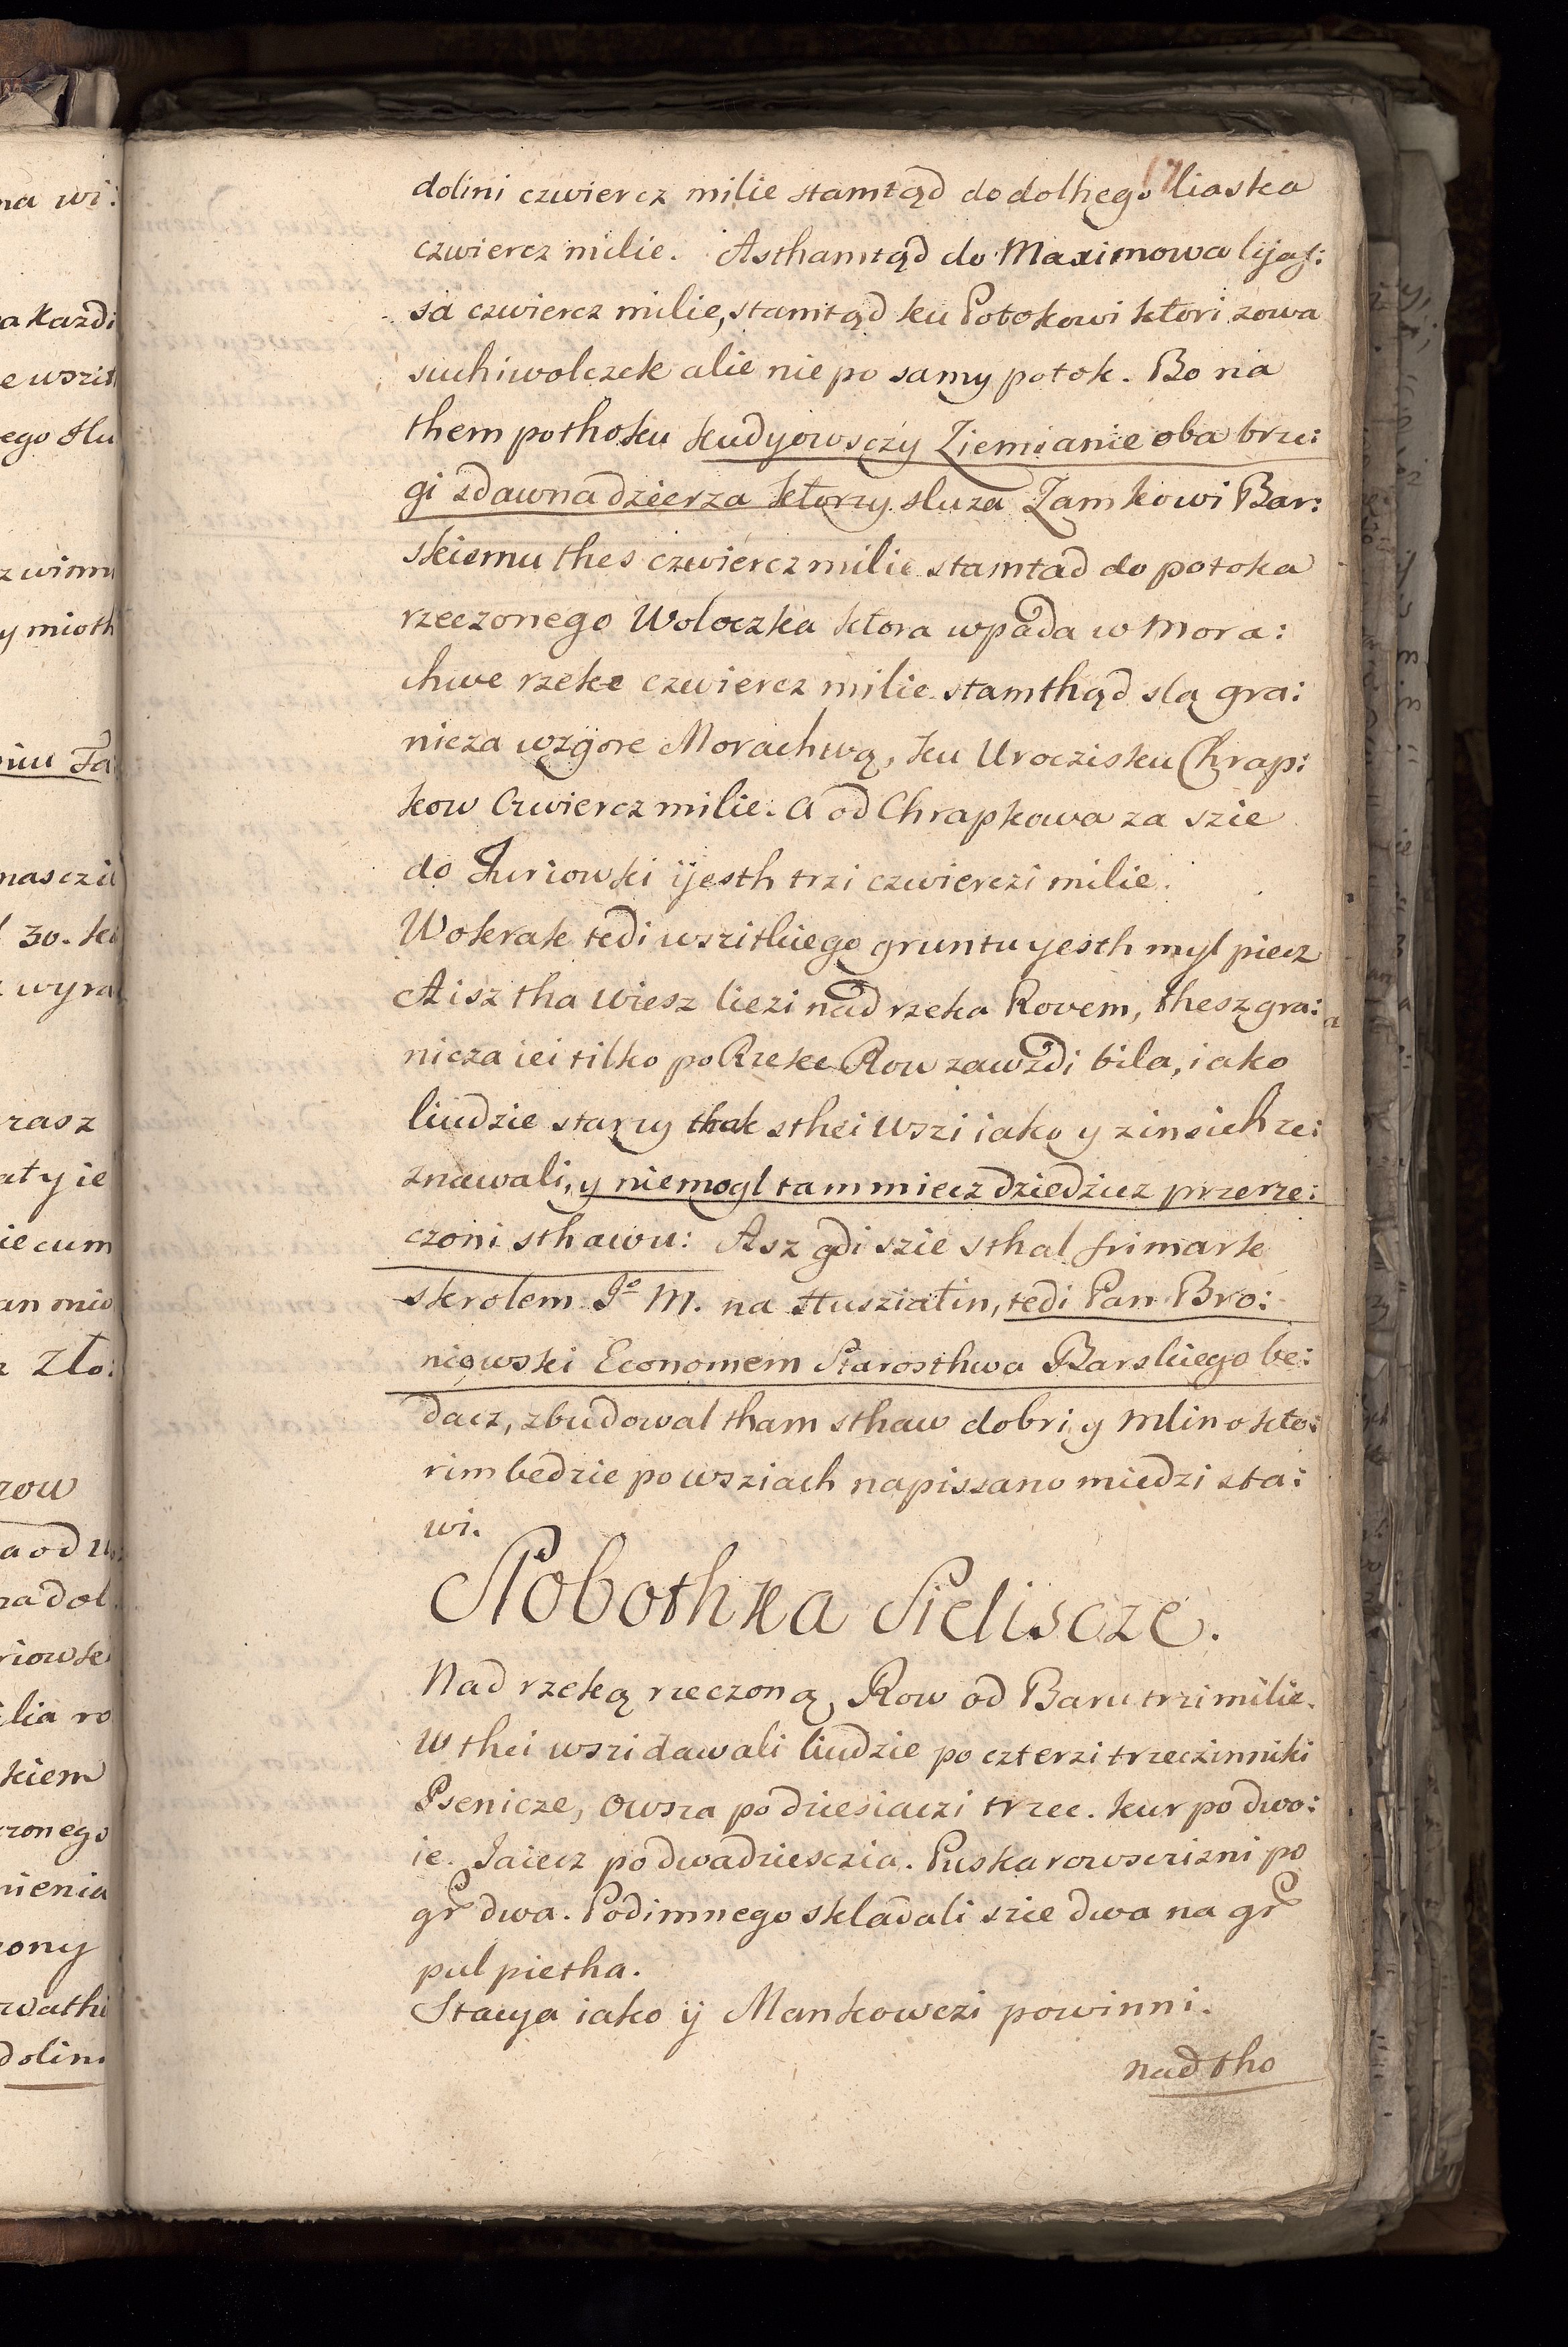 17
dolini czwiercz milie stamtąd do dolhego liaska
czwiercz milie. Asthamtąd do Maximowa lijas:
sa czwiercz milie, stamtąd ku Potokowi ktori zowa
suchiwolczek alie nie po samy potok. Bo na
them pothoku kudyowsczy Ziemianie oba brze:
gi zdawna dzierza ktorzy sluza Zamkowi Bar:
skiemu thes czwiercz milie stamtad do potoka
rzeczonego Woloczka ktora wpada w Mora:
chwe rzeke czwiercz milie stamthąd sla gra:
nicza wzgore Morachwą, ku Uroczisku Chrap:
kow Czwiercz milie. A od Chrapkowa za szie
do Juriowki ijesth trzi czwierczi milie.
Wokrak tedi wszitkiego gruntu yesth myl piecz
A isz tha wiesz liezi nad rzeka Rovem, thesz gra:
nicza iei tilko po Rzeke Row zawzdi bila, iako
liudzie starzy thak sthei wszi iako y zinsich ze:
znawali, y niemogl tam miecz dziedzicz przerze:
czoni sthawu: Asz gdi szie sthal frimark
skrolem Jo M. na Husziatin, tedi Pan Bro:
niowski Economem Starosthwa Barskiego be:
dacz, zbudowal tham sthaw dobri y Mlin o kto:
rim bedzie po wsziach napissano miedzi sta:
wi.
Slobothka Sieliscze.
Nad rzeką rzeczoną, Row od Baru trzi milie.
W thei wszi dawali liudzie po czterzi trzeczinniki
Psenicze, Owsza po dziesiaczi trzec. kur po dwo:
ie. Jaiecz po dwadziesczia. Puskarowscrizni po
gr dwa. Podimnego skladali szie dwa na gr
pul pietha.
Stacya iako ÿ Mankowczi powinni.
nad tho